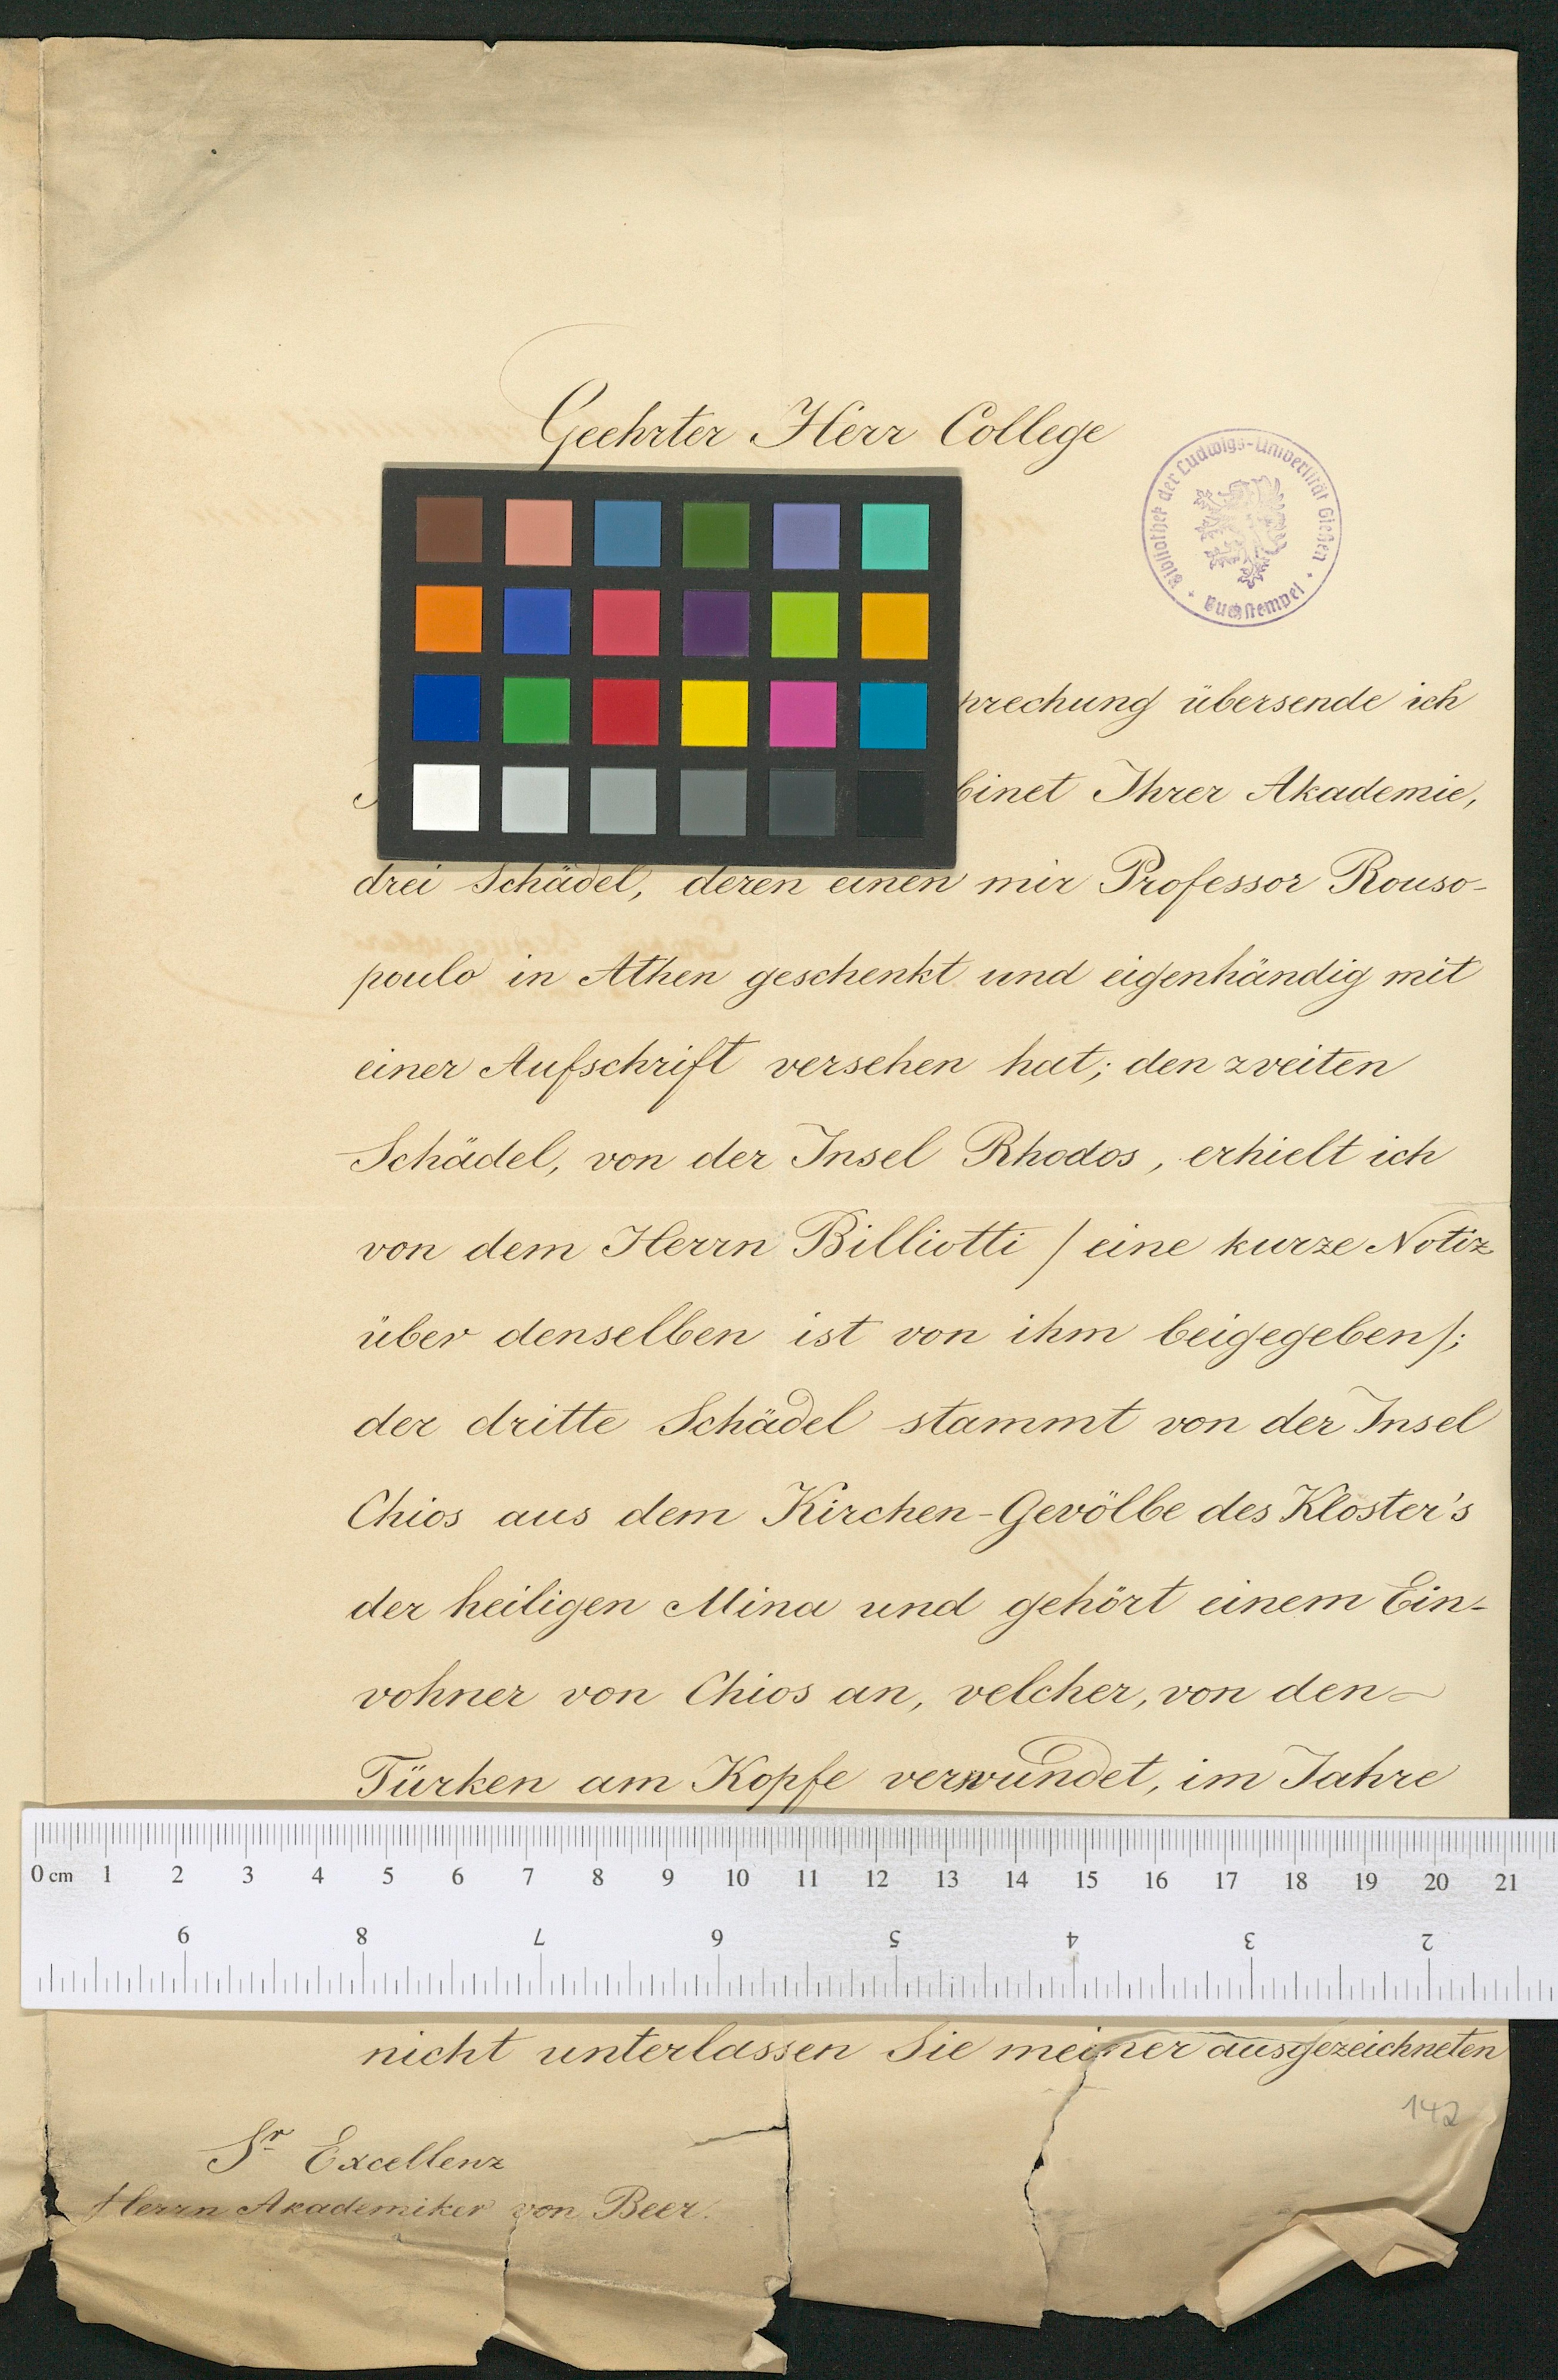 Geehrter Herr College
Bibliothek der Ludwigs-Universität Gießen
Buchstempel
prechung übersende ich
binet Ihrer Akademie,
drei Schädel, deren einen mir Professor Rouso-
poulo in Athen geschenkt und eigenhändig mit
einer Aufschrift versehen hat; den zveiten
Schädel, von der Insel Rhodos, erhielt ich
von dem Herrn Billiotti / eine kurze Notiz
über denselben ist von ihm beigegeben/;
der dritte Schädel stammt von der Insel
Chios aus dem Kirchen-Gevölbe des Kloster's
der heiligen Mina und gehört einem Ein-
vohner von Chios an, velcher, von den
Türken am Kopfe verwundet, im Jahre
0 cm 1 2 3 4 5 6 7 8 9 10 11 12 13 14 15 16 17 18 19 20 21
9 8 7 6 5 4 3 2
nicht unterlassen Sie meiner ausgezeichneten
142
Sr Excellenz
Herrn Akademiker von Beer.